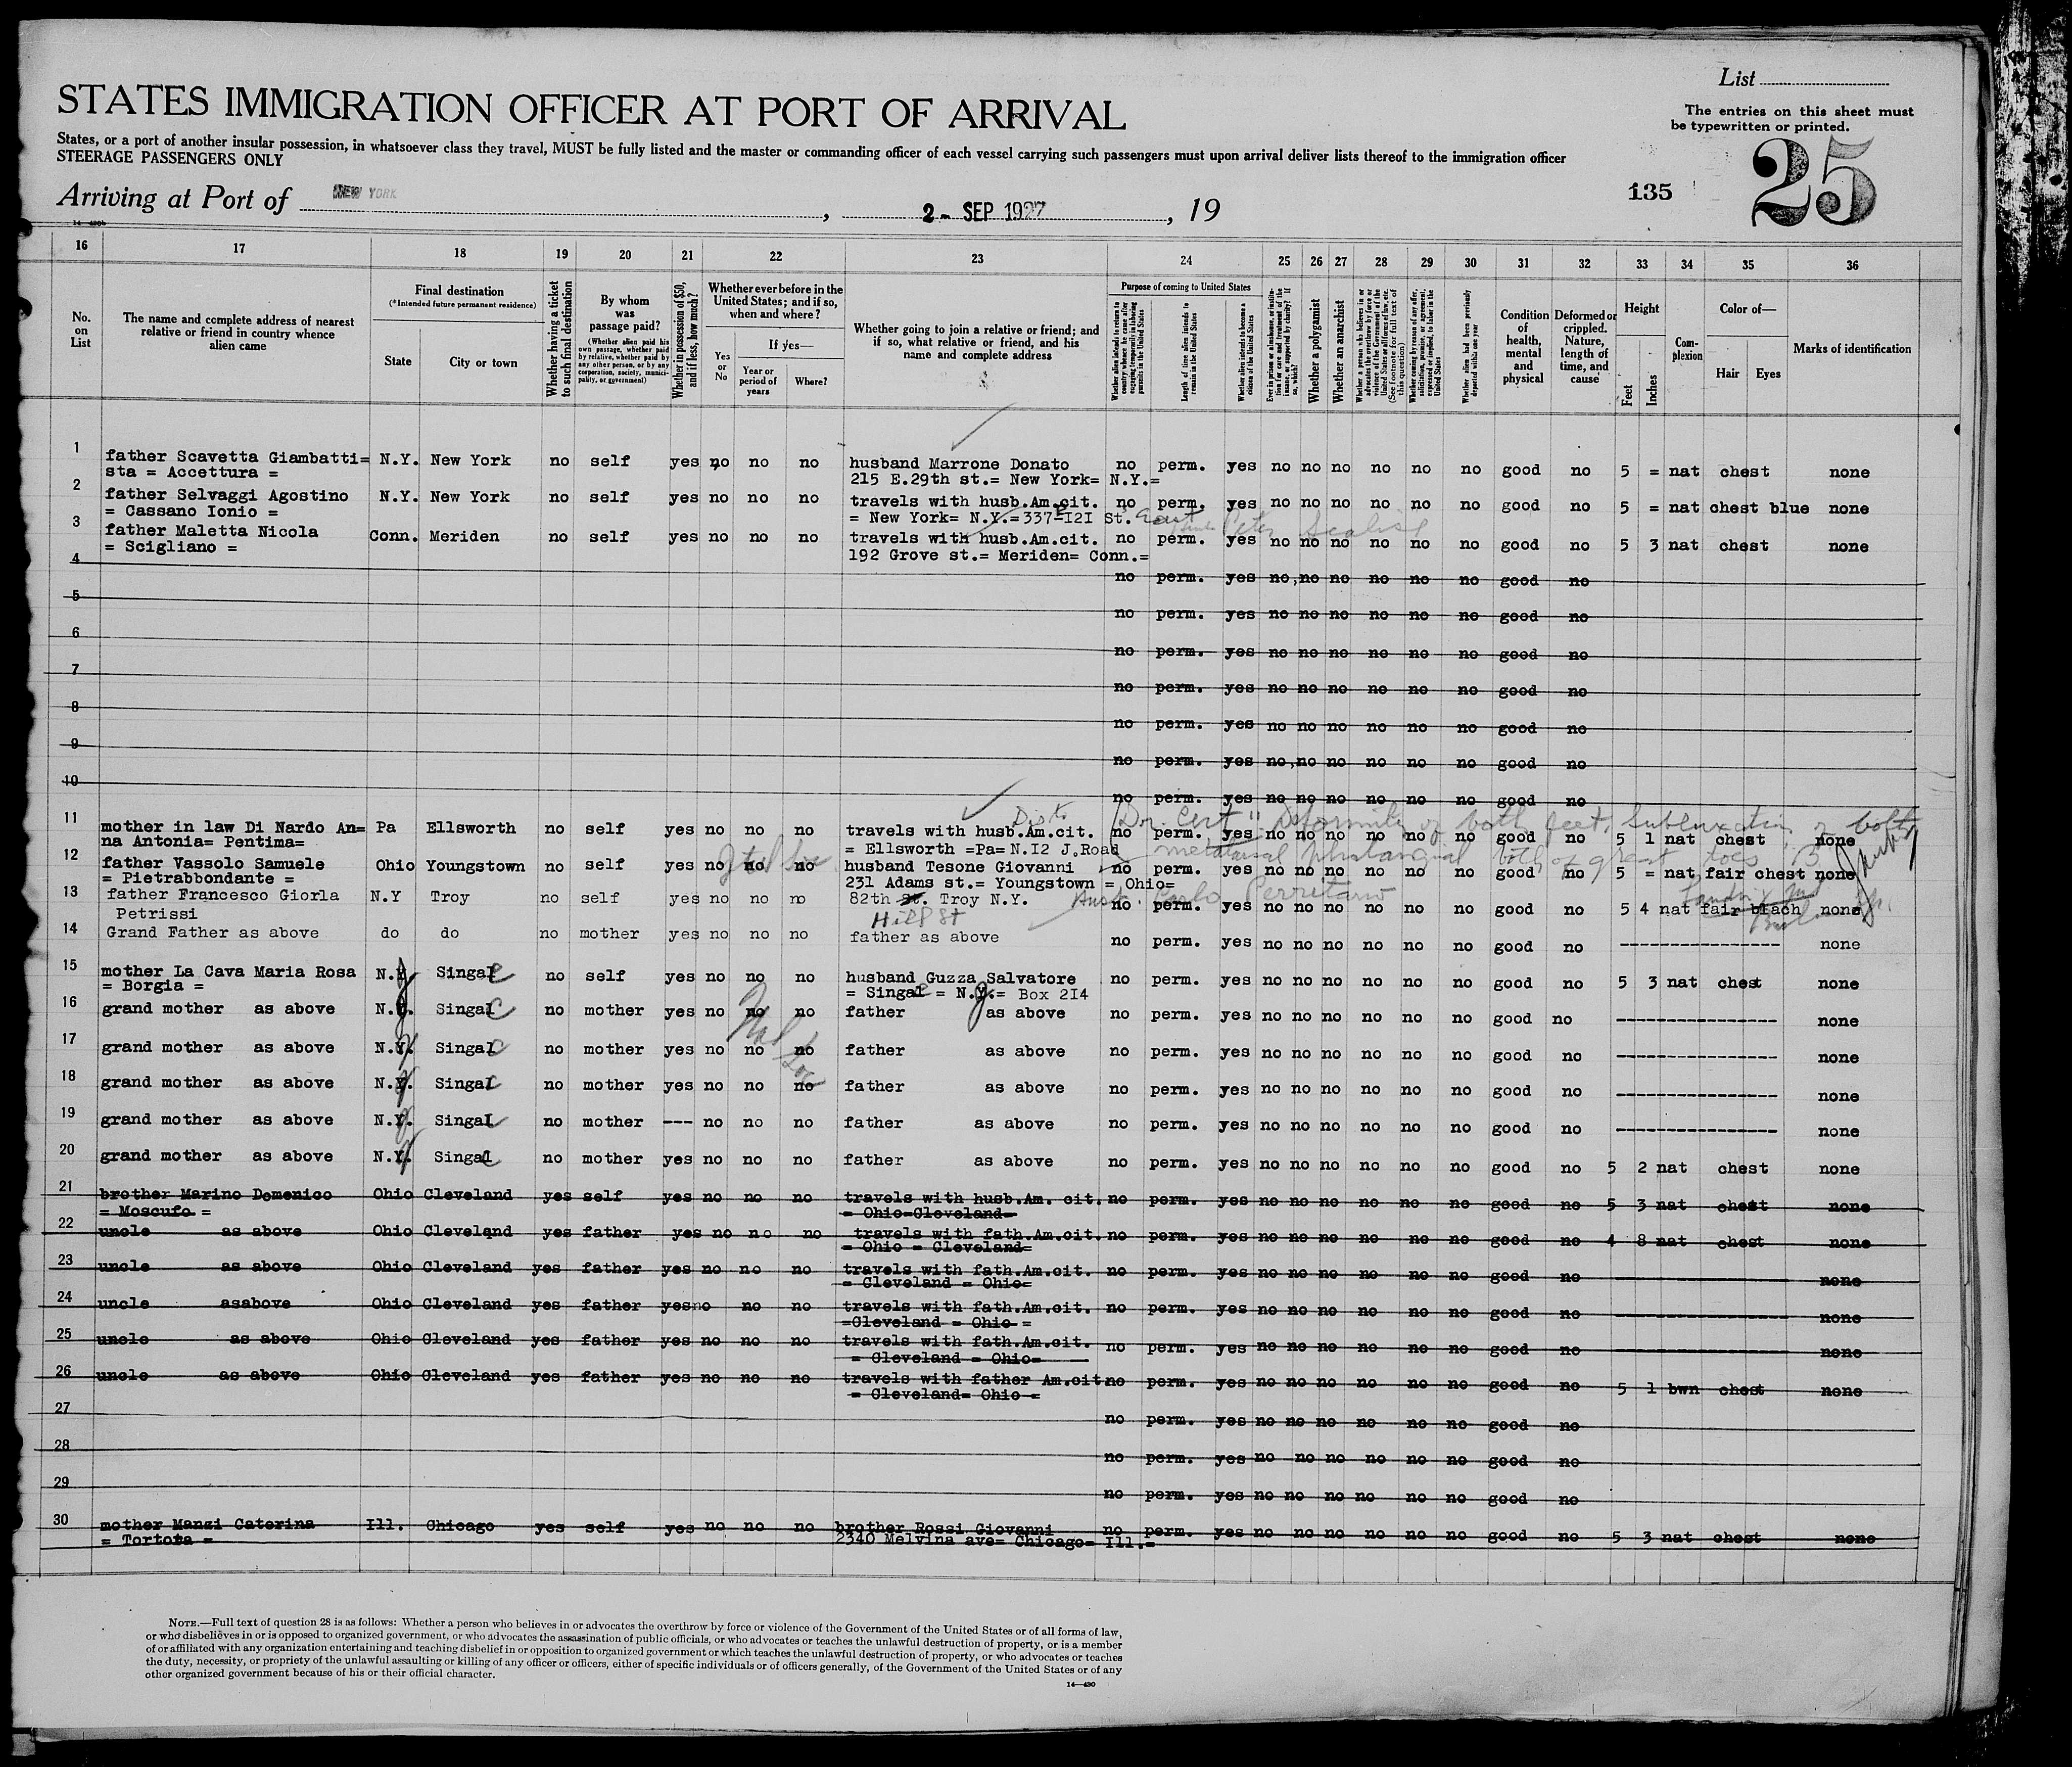 List
STATES IMMIGRATION OFFICER AT PORT OF ARRIVAL
The entries on this sheet must
be typewritten or printed.
States, or a port of another insular possession, in whatsoever class they travel, MUST be fully listed and the master or commanding officer of each vessel carrying such passengers must upon arrival deliver lists thereof to the immigration officer
STEERAGE PASSENGERS ONLY
Arriving at Port of NEW YORK, 2 - SEP 1927, 19
135 25
16 17 18 19 20 21 22 23 24 25 26 27 28 29 30 31 32 33 34 35 36
No. on List
The name and complete address of nearest relative or friend in country whence alien came
Final destination
(*Intended future permanent residence)
State
City or town
Whether having a ticket to such final destination
By whom was passage paid?
(Whether alien paid his own passage, whether paid by relative, whether paid by any other person, or by any corporation, society, municipality, or government)
Whether in possession of $50, and if less, how much?
Whether ever before in the United States; and if so, when and where?
Yes or No
If yes—
Year or period of years
Where?
Whether going to join a relative or friend; and if so, what relative or friend, and his name and complete address
Purpose of coming to United States
Length of time alien intends to remain in the United States
Whether alien intends to become a citizen of the United States
Whether a polygamist
Whether an anarchist
Whether alien had been previously deported within one year
Condition of health, mental and physical
Deformed or crippled. Nature, length of time, and cause
Height
Feet
Inches
Complexion
Color of—
Hair
Eyes
Marks of identification
1 father Scavetta Giambatti= N.Y. New York no self yes no no no husband Marrone Donato no perm. yes no no no no no no good no 5 = nat chest none
sta = Accettura = 215 E.29th st.= New York= N.Y.=
2 father Selvaggi Agostino N.Y. New York no self yes no no no travels with husb.Am.cit. no perm. yes no no no no no no good no 5 = nat chest blue none
= Cassano Ionio = = New York= N.Y.=337-I2I St. East
3 father Maletta Nicola Conn. Meriden no self yes no no no travels with husb.Am.cit. no perm. yes no no no no no no good no 5 3 nat chest none
= Scigliano = 192 Grove st.= Meriden= Conn.=
4 no perm. yes no, no no no no no good no
5 no perm. yes no no no no no no good no
6 no perm. yes no no no no no no good no
7 no perm. yes no no no no no no good no
8 no perm. yes no no no no no no good no
9 no perm. yes no, no no no no no good no
10 no perm. yes no no no no no no good no
Dr. Cert " Deformity of both feet, Subluxation of both
11 mother in law Di Nardo An= Pa Ellsworth no self yes no no no travels with husb.Am.cit. no perm. yes no no no no no no good no 5 1 nat chest none
na Antonia= Pentima= = Ellsworth =Pa= N.I2 J.Road
metatarsal phalangial both of great toes
12 father Vassolo Samuele Ohio Youngstown no self yes no no no husband Tesone Giovanni no perm. yes no no no no no no good no 5 = nat fair chest none
= Pietrabbondante = 231 Adams st.= Youngstown = Ohio=
13 father Francesco Giorla N.Y Troy no self yes no no no 82th st. Troy N.Y. no perm. yes no no no no no no good no 5 4 nat fair blach none
Petrissi Hill St
14 Grand Father as above do do no mother yes no no no father as above no perm. yes no no no no no no good no ---------------- none
15 mother La Cava Maria Rosa N.J. Singac no self yes no no no husband Guzza Salvatore no perm. yes no no no no no no good no 5 3 nat chest none
= Borgia = = Singac = N.J.= Box 2I4
16 grand mother as above N.J. Singac no mother yes no no no father as above no perm. yes no no no no no no good no ---------------- none
17 grand mother as above N.J. Singac no mother yes no no no father as above no perm. yes no no no no no no good no ---------------- none
18 grand mother as above N.J. Singac no mother yes no no no father as above no perm. yes no no no no no no good no ---------------- none
19 grand mother as above N.J. Singac no mother --- no no no father as above no perm. yes no no no no no no good no ---------------- none
20 grand mother as above N.J. Singac no mother yes no no no father as above no perm. yes no no no no no no good no 5 2 nat chest none
21 brother Marino Domenico Ohio Cleveland yes self yes no no no travels with husb.Am. cit. no perm. yes no no no no no no good no 5 3 nat chest none
= Moscufo = = Ohio=Cleveland=
22 uncle as above Ohio Cleveland yes father yes no no no travels with fath.Am.cit. no perm. yes no no no no no no good no 4 8 nat chest none
= Ohio = Cleveland=
23 uncle as above Ohio Cleveland yes father yes no no no travels with fath.Am.cit. no perm. yes no no no no no no good no none
= Cleveland = Ohio=
24 uncle asabove Ohio Cleveland yes father yesno no no travels with fath.Am.cit. no perm. yes no no no no no no good no none
=Cleveland = Ohio =
25 uncle as above Ohio Cleveland yes father yes no no no travels with fath.Am.cit. no perm. yes no no no no no no good no none
= Cleveland = Ohio=
26 uncle as above Ohio Cleveland yes father yes no no no travels with father Am.cit. no perm. yes no no no no no no good no 5 1 bwn chest none
= Cleveland= Ohio =
27 no perm. yes no no no no no no good no
28 no perm. yes no no no no no no good no
29 no perm. yes no no no no no no good no
30 mother Manzi Caterina Ill. Chicago yes self yes no no no brother Rossi Giovanni no perm. yes no no no no no no good no 5 3 nat chest none
= Tortora = 2340 Melvina ave= Chicago= Ill.=
NOTE.—Full text of question 28 is as follows: Whether a person who believes in or advocates the overthrow by force or violence of the Government of the United States or of all forms of law,
or who disbelieves in or is opposed to organized government, or who advocates the assassination of public officials, or who advocates or teaches the unlawful destruction of property, or is a member
of or affiliated with any organization entertaining and teaching disbelief in or opposition to organized government or which teaches the unlawful destruction of property, or who advocates or teaches
the duty, necessity, or propriety of the unlawful assaulting or killing of any officer or officers, either of specific individuals or of officers generally, of the Government of the United States or of any
other organized government because of his or their official character.
14—430